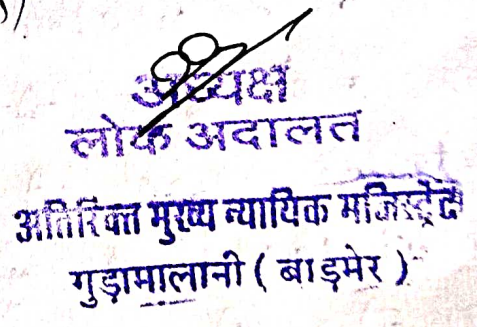 अध्यक्ष
लोक अदालत
अतिरिक्त मुख्य न्यायिक मजिस्ट्रेट
गुड़ामालानी ( बाड़मेर )